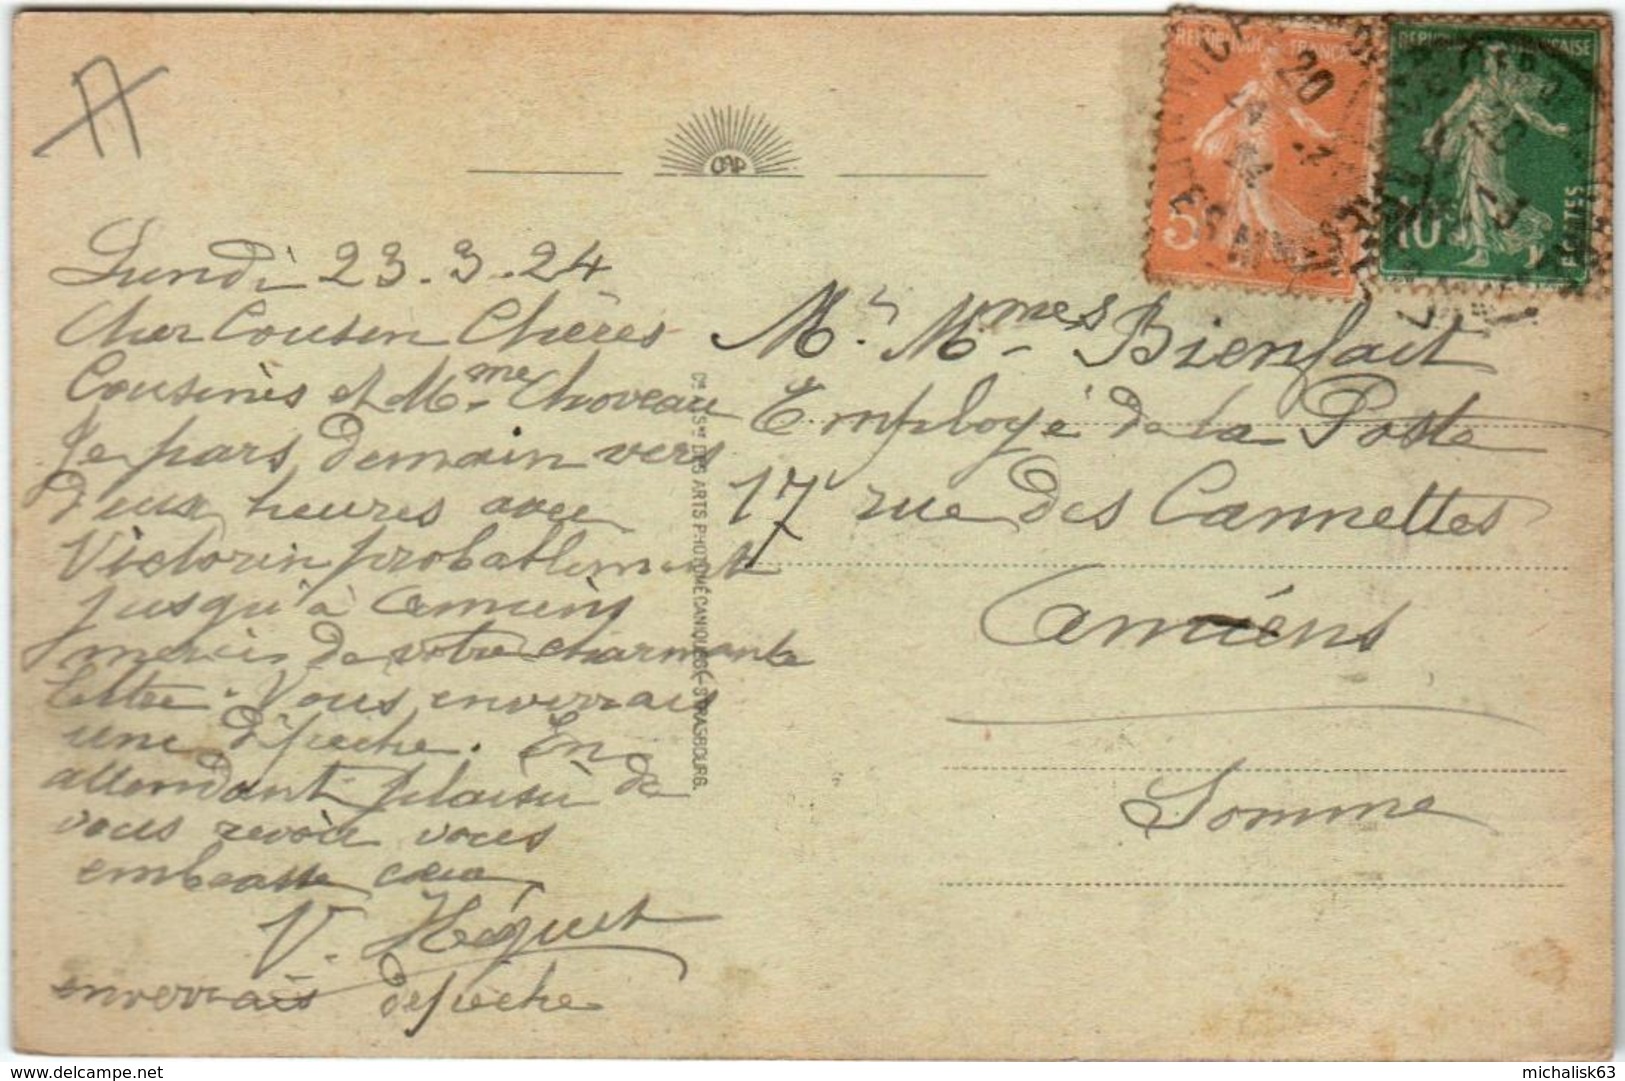 Lundi 23.3.24
Cher Cousin Chères
Cousines et Mme Choveau
Je pars demain vers
deux heures avec
Victorin probablement
jusqu'à Amiens
mercis de votre charmante
lettre. Vous enverrais
une dépèche. En
attendant plaisir de
vous revoir vous
embrasse
V. Héquet
enverrais depèche
CAP
Cie Alsne DES ARTS PHOTOMÉCANIQUES - STRASBOURG.
REPUBLIQUE FRANÇAISE
5
REPUBLIQUE FRANÇAISE
10c POSTES
Mr. Mmes Bienfait
Employé de la Poste
17 rue des Cannettes
Amiens
Somme
www.delcampe.net
michalisk63